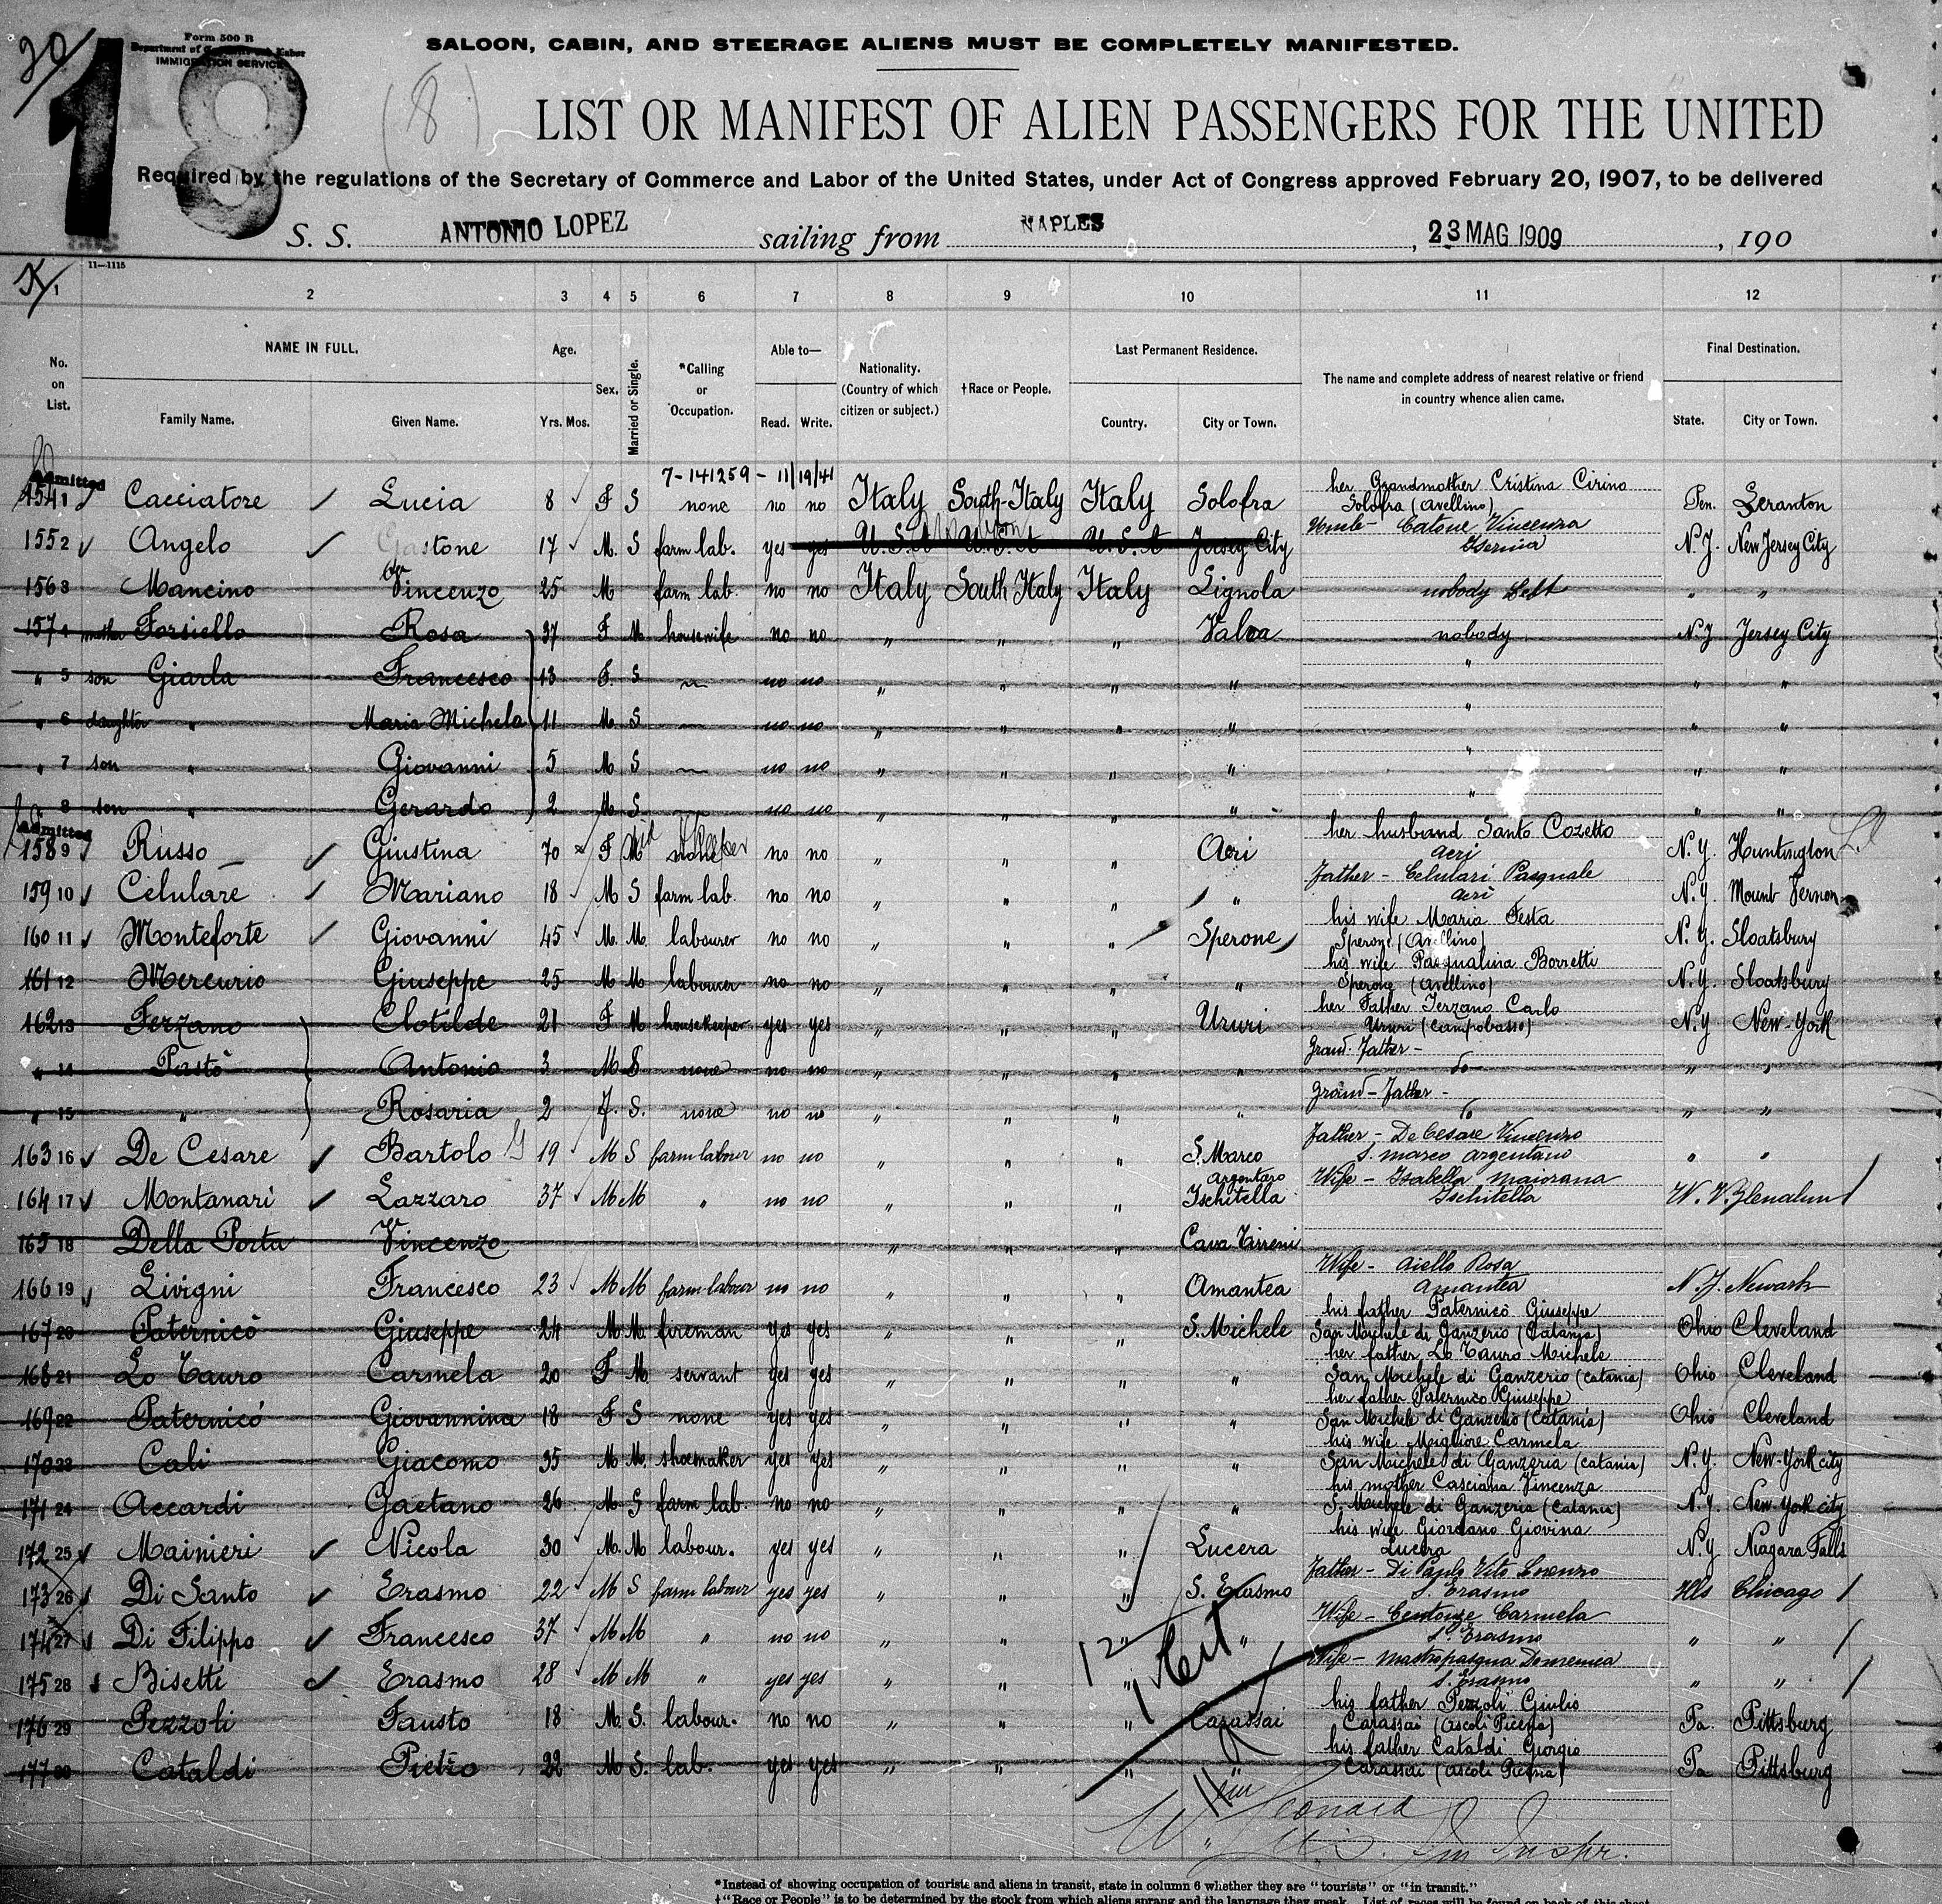 20
18
Form 500 B
Department of Commerce and Labor
IMMIGRATION SERVICE
SALOON, CABIN, AND STEERAGE ALIENS MUST BE COMPLETELY MANIFESTED.
(8)
LIST OR MANIFEST OF ALIEN PASSENGERS FOR THE UNITED
Required by the regulations of the Secretary of Commerce and Labor of the United States, under Act of Congress approved February 20, 1907, to be delivered
S. S. ANTONIO LOPEZ sailing from NAPLES, 23 MAG 1909, 190
11—1115
1 2 3 4 5 6 7 8 9 10 11 12
No. on List. NAME IN FULL. Family Name. Given Name. Age. Yrs. Mos. Sex. Married or Single. *Calling or Occupation. Able to— Read. Write. Nationality. (Country of which citizen or subject.) †Race or People. Last Permanent Residence. Country. City or Town. The name and complete address of nearest relative or friend in country whence alien came. Final Destination. State. City or Town.
7-141259 - 11/19/41
Admitted
154 1 Cacciatore Lucia 8 F S none no no Italy South-Italy Italy Solofra her Grandmother Cristina Cirino Solofra (Avellino) Pen. Scranton
155 2 Angelo Gastone 17 M. S farm lab. yes yes U.S.A U.S.A U.S.A Jersey City Uncle - Catone Vincenzo Isernia N.J. New Jersey City
156 3 Mancino Vincenzo 25 M farm lab. no no Italy South Italy Italy Lignola nobody left " "
157 4 mother Forsiello Rosa 37 F M housewife no no " " " Valva nobody N.J Jersey City
" 5 son Giarla Francesco 13 F. S ~ no no " " " " " " "
" 6 daughter " Maria Michela 11 M. S — no no " " " " " " "
" 7 son " Giovanni 5 M S ~ no no " " " " " " "
" 8 son " Gerardo 2 M S no no " " " " " " "
Admitted
158 9 Russo Giustina 70 F no no " " " Acri her husband Santo Cozetto Acri N.Y. Huntington
159 10 Celulare Mariano 18 M S farm lab. no no " " " " Father - Celulari Pasquale Acri N.Y. Mount Vernon
160 11 Monteforte Giovanni 45 M. M. labourer no no " " " Sperone his wife Maria Festa Sperone (Avellino) N.Y. Sloatsbury
161 12 Mercurio Giuseppe 25 M M labourer no no " " " " his wife Pasqualina Borretti Sperone (Avellino) N.Y. Sloatsbury
162 13 Ferzano Clotilde 21 F M housekeeper yes yes " " " Ururi her Father Terzano Carlo Ururi (Campobasso) N.Y New-York
" 14 Pastò Antonio 3 M S none no no " " " " Grand-Father - do " "
" 15 " Rosaria 2 F. S. none no no " " " " Grand-Father - do " "
163 16 De Cesare Bartolo 19 M S farm labour no no " " " S. Marco Argentaro Father - De Cesare Vincenzo S. Marco Argentano " "
164 17 Montanari Lazzaro 37 M M " no no " " " Ischitella Wife - Isabella Maiorana Ischitella W. V.
165 18 Della Porta Vincenzo " " " Cava Tirreni
166 19 Livigni Francesco 23 M M farm labour no no " " " Amantea Wife - Aiello Rosa Amantea N.J. Newark
167 20 Paternicò Giuseppe 24 M M. fireman yes yes " " " S. Michele his father Paternicò Giuseppe San Michele di Ganzerio (Catania) Ohio Cleveland
168 21 Lo Tauro Carmela 20 F M. servant yes yes " " " " her father Lo Tauro Michele San Michele di Ganzerio (Catania) Ohio Cleveland
169 22 Paternicò Giovannina 18 F S none yes yes " " " " her father Paternicò Giuseppe San Michele di Ganzerio (Catania) Ohio Cleveland
170 23 Cali Giacomo 35 M M. shoemaker yes yes " " " " his wife Migliore Carmela San Michele di Ganzeria (Catania) N.Y. New-York city
171 24 Accardi Gaetano 26 M S farm lab. no no " " " " his mother Casciana Vincenza S. Michele di Ganzeria (Catania) N.Y. New-York city
172 25 Mainieri Nicola 30 M. M labour. yes yes " " " Lucera his wife Giordano Giovina Lucera N.Y. Niagara Falls
173 26 Di Santo Erasmo 22 M S farm labour yes yes " " " S. Erasmo Father - Di Paolo Vito Lorenzo S. Erasmo Ills Chicago
174 27 Di Filippo Francesco 37 M M " no no " " " " Wife - Centonze Carmela S. Erasmo " "
175 28 Bisetti Erasmo 28 M M " yes yes " " " Wife - Mastropasqua Domenica S. Erasmo " "
176 29 Pezzoli Fausto 18 M. S. labour. no no " " " Carassai his father Pezzoli Giulio Carassai (Ascoli Piceno) Pa. Pittsburg
177 30 Cataldi Pietro 22 M S. lab. yes yes " " " " his father Cataldi Giorgio Carassai (Ascoli Piceno) Pa Pittsburg
12
1 Cit
W. Leonard
Im Inspr.
*Instead of showing occupation of tourists and aliens in transit, state in column 6 whether they are "tourists" or "in transit."
†"Race or People" is to be determined by the stock from which aliens sprang and the language they speak. List of races will be found on back of this sheet.